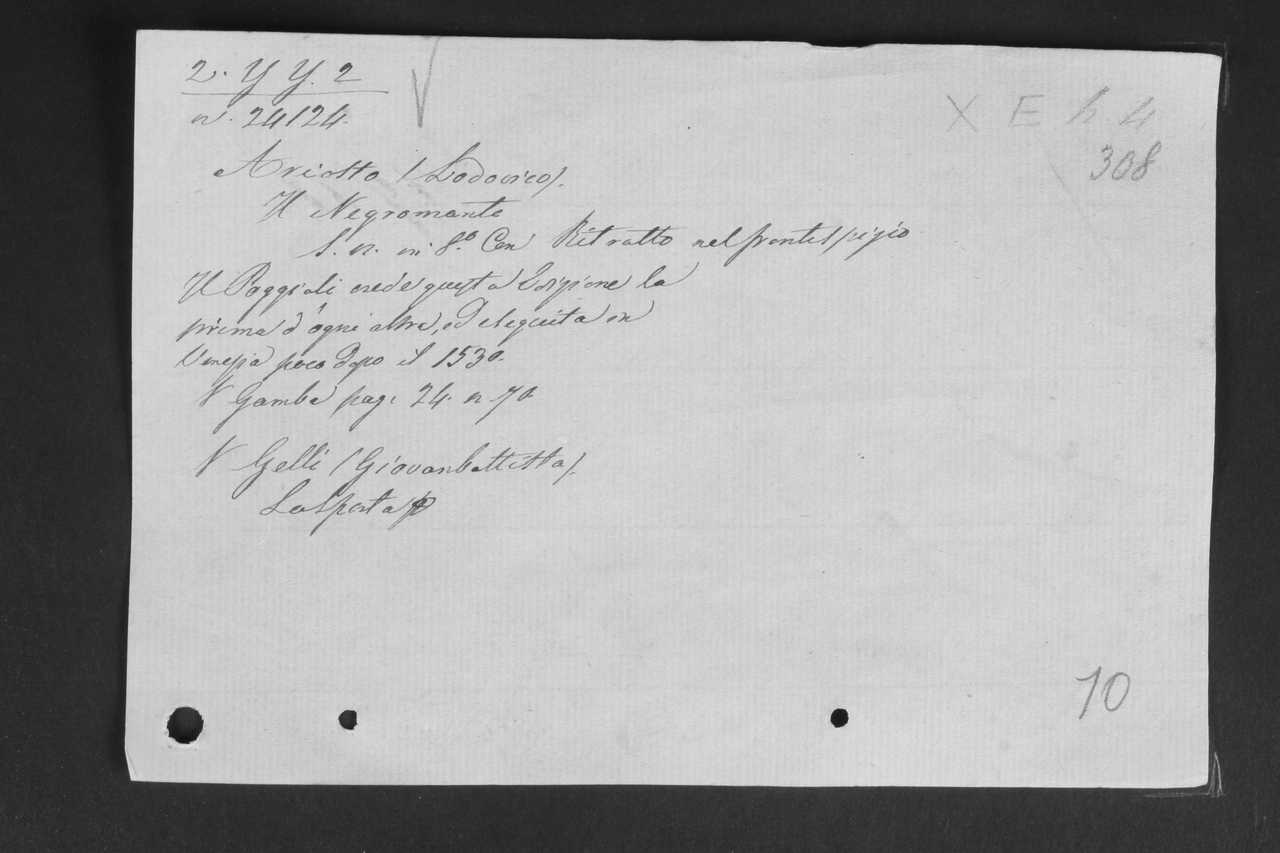 2. Y Y. 2
n. 24124.
X E h 4
308
Ariosto (Lodovico).
Il Negromante
S. n. in 8.º Con Ritratto nel frontespizio
Il Poggiali crede questa Edizione la
prima d'ogni altra, ed eseguita in
Venezia poco dopo il 1530.
V Gamba pag. 24. n 70
V Gelli (Giovanbattista).
La Sporta
10